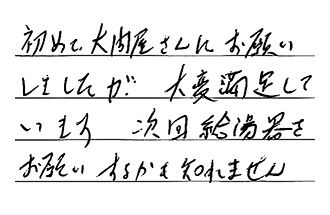 初めて大問屋さんにお願い
しましたが 大変満足して
います 次回給湯器を
お願いするかも知れません